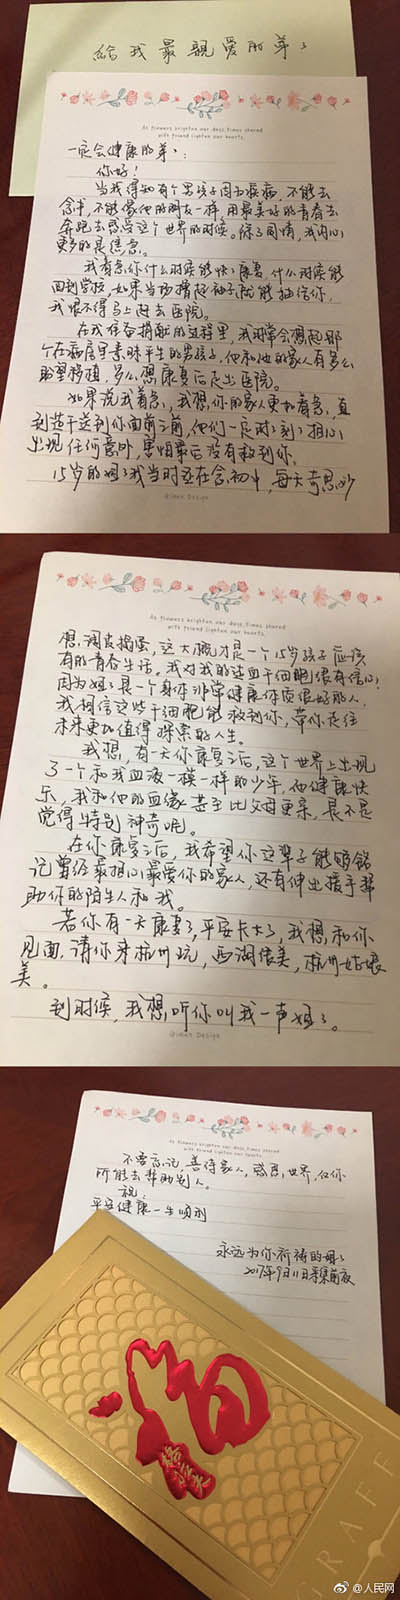 给我最亲爱的弟弟
As flowers brighten our days, Times shared
with friend lighten our hearts.
一定会健康的弟弟：
你好！
当我得知有个男孩子因为疾病，不能去
念书，不能像他的朋友一样，用最美好的青春去
奔跑去感受这个世界的时候。除了同情，我内心
更多的是焦急。
我着急你什么时候能快快康复，什么时候能
回到学校，如果当场撸起袖子就能抽给你，
我恨不得马上赶去医院。
在我准备捐献的过程里，我时常会想起那
个在病房里素昧平生的男孩子，他和他的家人有多么
盼望移植，多么想康复后走出医院。
如果说我着急，我想你的家人更加着急，直
到造干送到你面前之前，他们一定时时刻刻担心
出现任何意外，害怕最后没有救到你。
15岁的姐姐我当时还在念初中，每天奇思妙
@iMan Design
As flowers brighten our days, Times shared
with friend lighten our hearts.
想，调皮捣蛋，这大概才是一个15岁孩子应该
有的青春生活。我对我的造血干细胞很有信心，
因为姐姐是一个身体非常健康体质很好的人，
我相信这些干细胞能救到你，带你走往
未来更加值得探索的人生。
我想，有一天你康复之后，这个世界上出现
了一个和我血液一模一样的少年，他健康快
乐，我和他的血缘甚至比父母更亲，是不是
觉得特别神奇呢。
在你康复之后，我希望你这辈子能够铭
记曾经最担心最爱你的家人，还有伸出援手帮
助你的陌生人和我。
若你有一天康复了，平安长大了，我想和你
见面，请你来杭州玩，西湖很美，杭州姑娘
美。
到时候，我想听你叫我一声姐姐。
@iMan Design
As flowers brighten our days, Times shared
with friend lighten our hearts.
不要忘记，善待家人，感恩世界，尽你
所能去帮助别人。
祝：
平安健康一生顺利
永远为你祈祷的姐姐
2017年9月11日采集前夜
福
GRAFF
@人民网